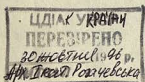 ЦДІАК УКРАЇНИ
ПЕРЕВІРЕНО
20 жовтня 1996 р.
Рогачевська